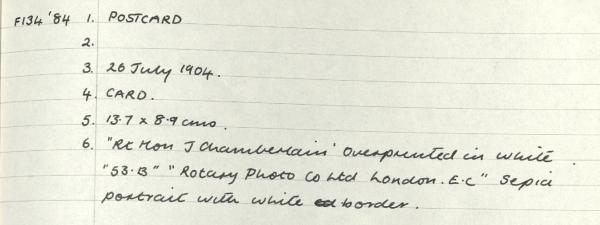 F134 '84 1. POSTCARD
2.
3. 26 July 1904.
4. CARD.
5. 13.7 x 8.9 cms.
6. "Rt Hon J Chamberlain' Overprinted in white.
"53.B" "Rotary Photo Co Ltd London. E.C" Sepia
portrait with white border.